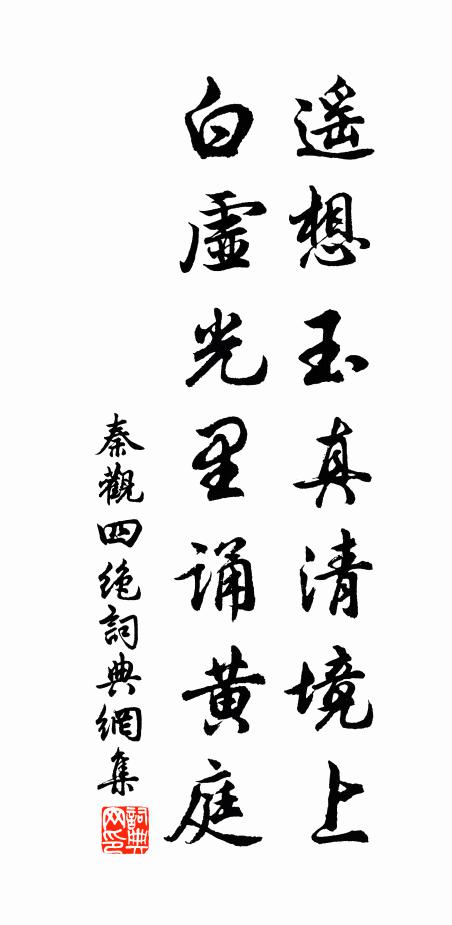 遥想玉真清境上
白虛光里誦黄庭
秦觀四绝詞典網集
詞典网印